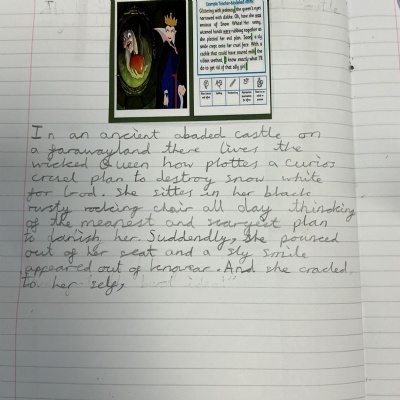 Example Teacher-Modelled Write:
Glistening with jealousy, the queen's eyes
narrowed with dislike. Oh, how she was
envious of Snow White! Her wiry,
wizened hands were rubbing together as
she planned her evil plan. Soon, a sly
smile crept onto her cruel face. With a
cackle that could have soured milk, the
villain seethed, "I know exactly what I'll
do to get rid of that silly girl."
In an ancient abaded castle on
a farawayland there lives the
wicked Queen how plottes a curios
cruel plan to destroy snow white
for God. She sittes in her black
rusty rocking chair all day thindking
of the meanest and scargest plan
to banish her. Suddendly, She pounced
out of her seat and a sly smile
appeared out of knowear. And she cracled
to her self,